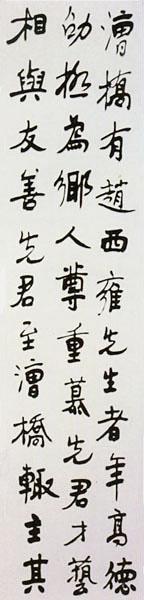 漕橋有趙西雍先生者年高德
劭極為鄉人尊重慕先君才藝
相與友善先君至漕橋輒主其